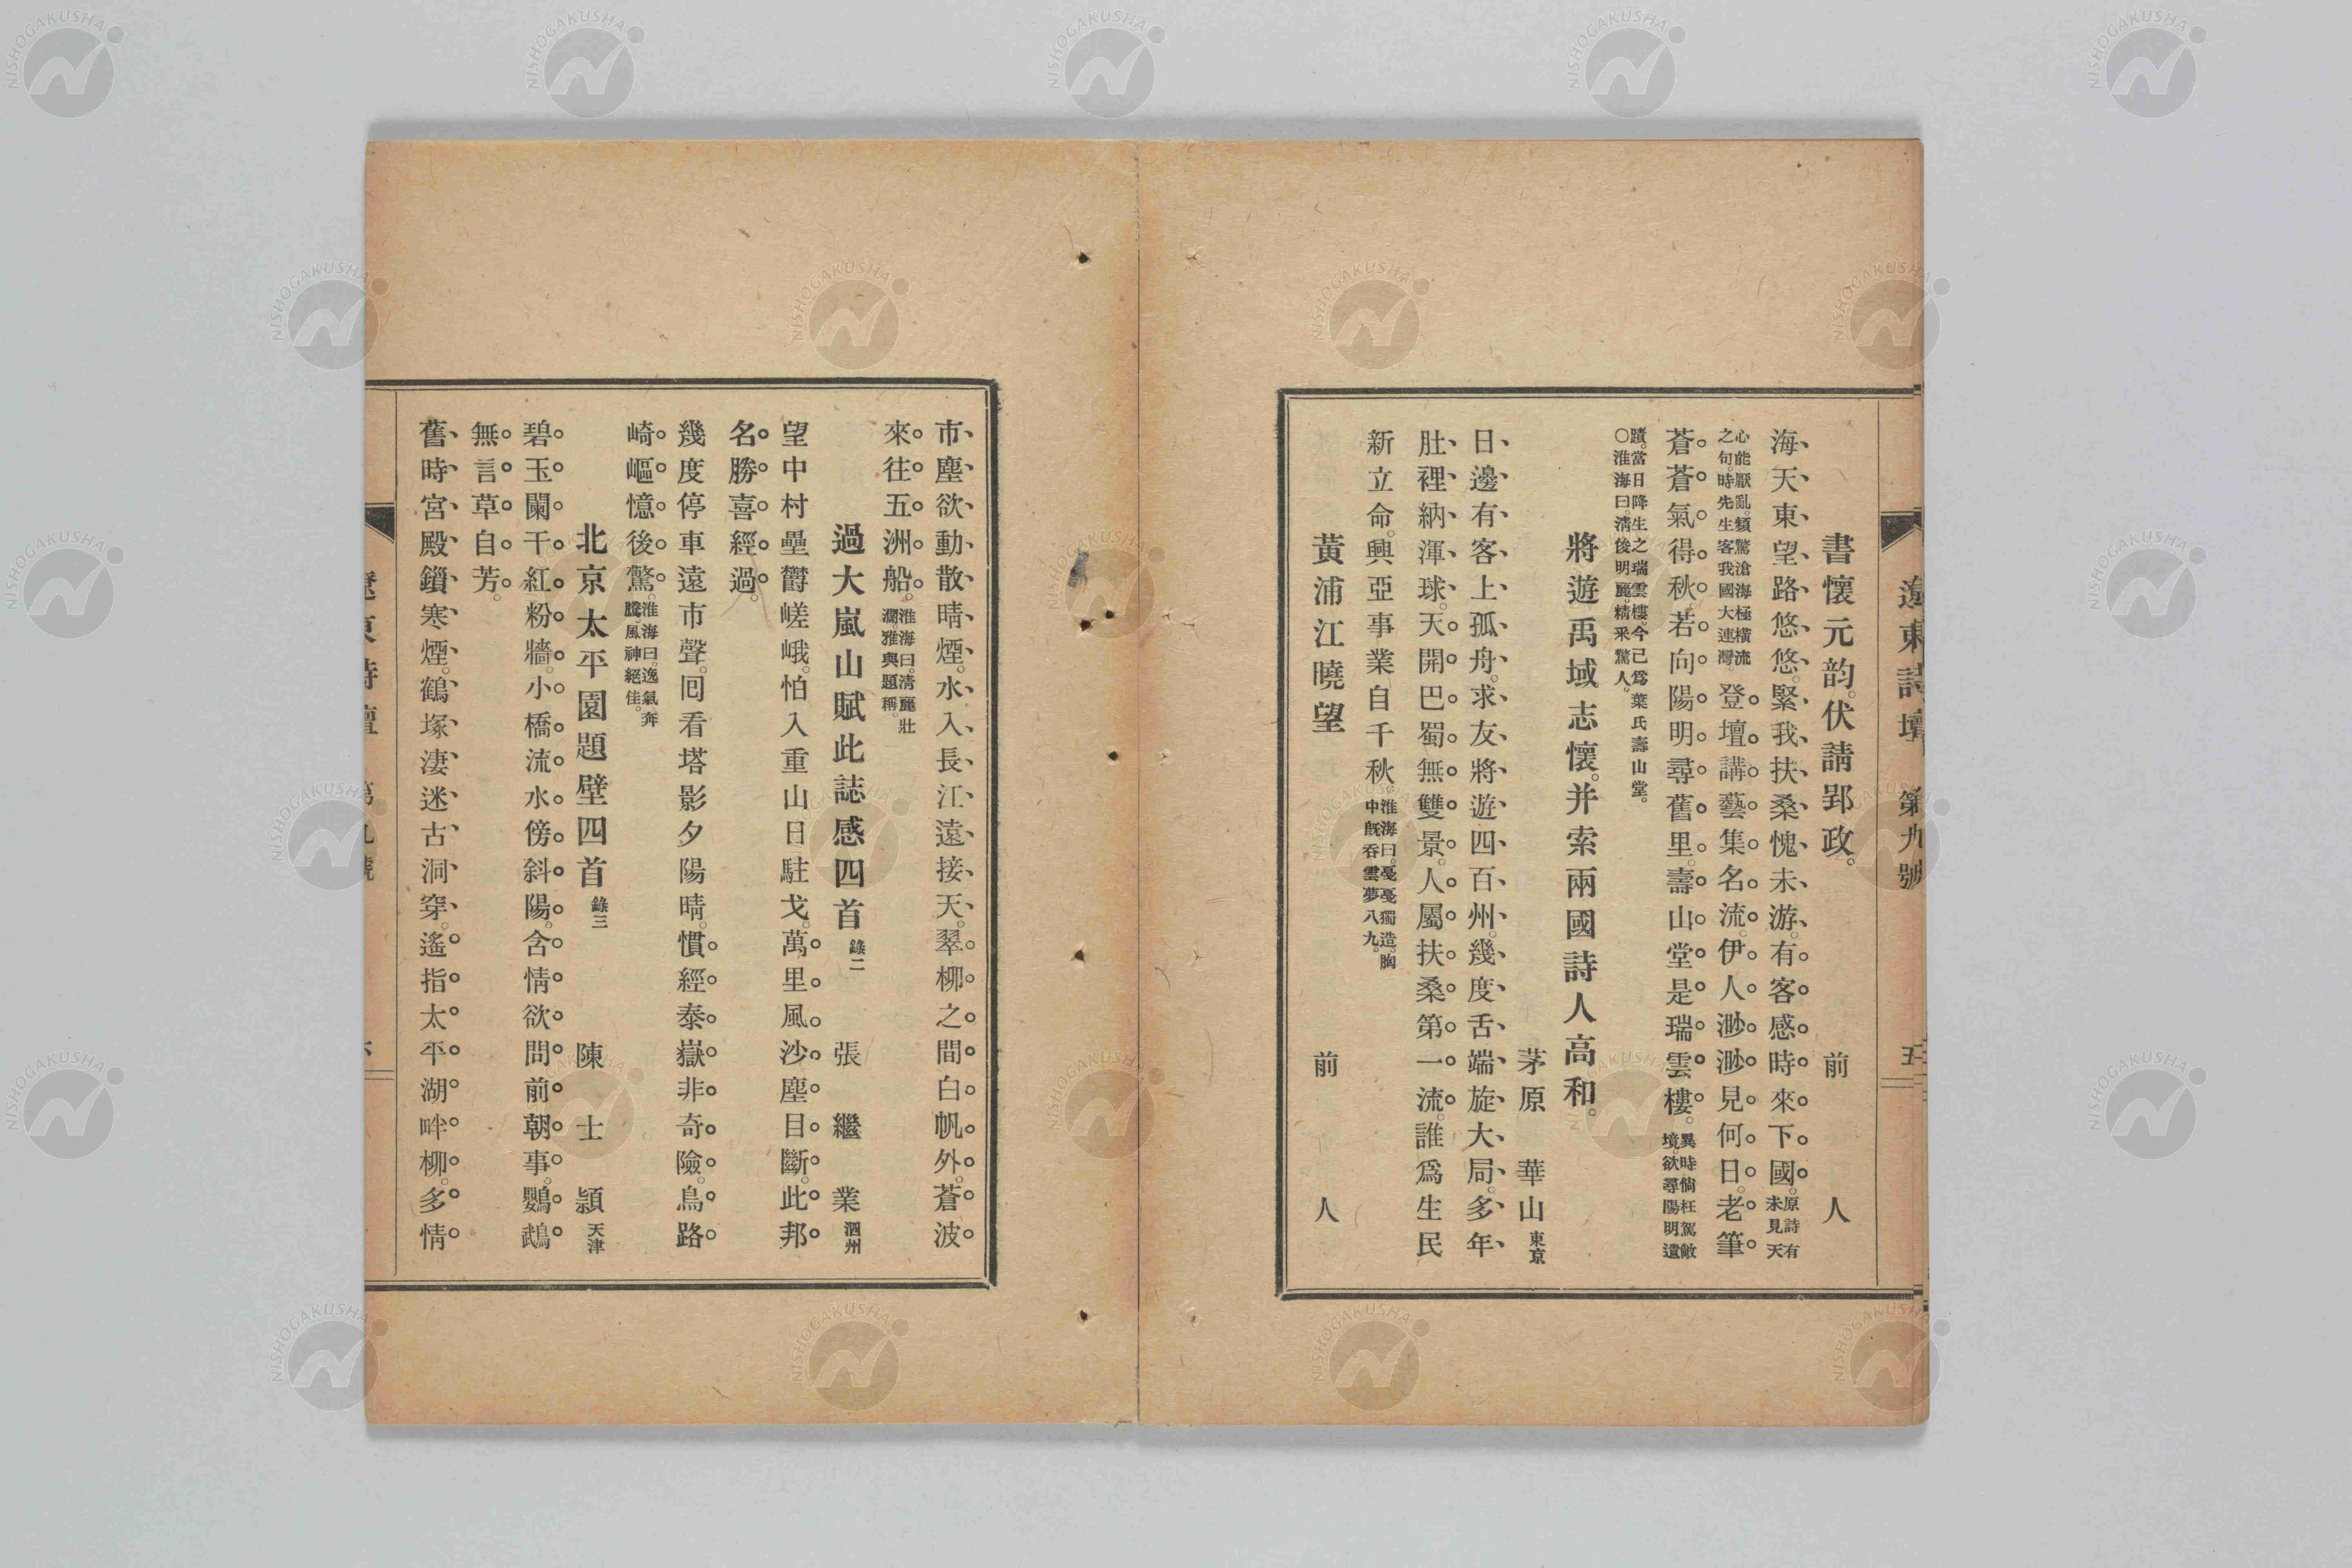 遼東詩壇 第九號 五
書懷元韵。伏請郢政。 前人
海天東望路悠悠。緊我扶桑愧未游。有客感時來下國。原詩有未見天
心能厭亂。頻驚滄海極橫流之句。時先生客我國大連灣。登壇講藝集名流。伊人渺渺見何日。老筆
蒼蒼氣得秋。若向陽明尋舊里。壽山堂是瑞雲樓。異時倘枉駕敝境。欲尋陽明遺
蹟。當日降生之瑞雲樓。今已爲葉氏壽山堂。〇淮海曰。清後明麗。精采驚人。
將遊禹域志懷。并索兩國詩人高和。
茅原華山 東京
日邊有客上孤舟。求友將遊四百州。幾度舌端旋大局。多年
肚裡納渾球。天開巴蜀無雙景。人屬扶桑第一流。誰爲生民
新立命。興亞事業自千秋。淮海曰。戞戞獨造。胸中旣呑雲夢八九。
黃浦江曉望 前人
市塵欲動散晴煙。水入長江遠接天。翠柳之間白帆外。蒼波
來往五洲船。淮海曰。淸麗壯濶。雅與題稱。
過大嵐山賦此誌感四首 錄二 張繼業 泗州
望中村壘鬱嵯峨。怕入重山日駐戈。萬里風沙塵目斷。此邦
名勝喜經過。
幾度停車遠市聲。囘看塔影夕陽晴。慣經泰嶽非奇險。鳥路
崎嶇憶後驚。淮海曰。逸氣奔騰。風神絕佳。
北京太平園題壁四首 錄三 陳士頴 天津
碧玉闌干紅粉牆。小橋流水傍斜陽。含情欲問前朝事。鸚鵡
無言草自芳。
舊時宮殿鎖寒煙。鶴塚淒迷古洞穿。遙指太平湖畔柳。多情
遼東詩壇 第九號 六